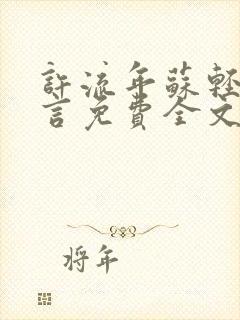 許流年蘇輕
言免費全文
将年